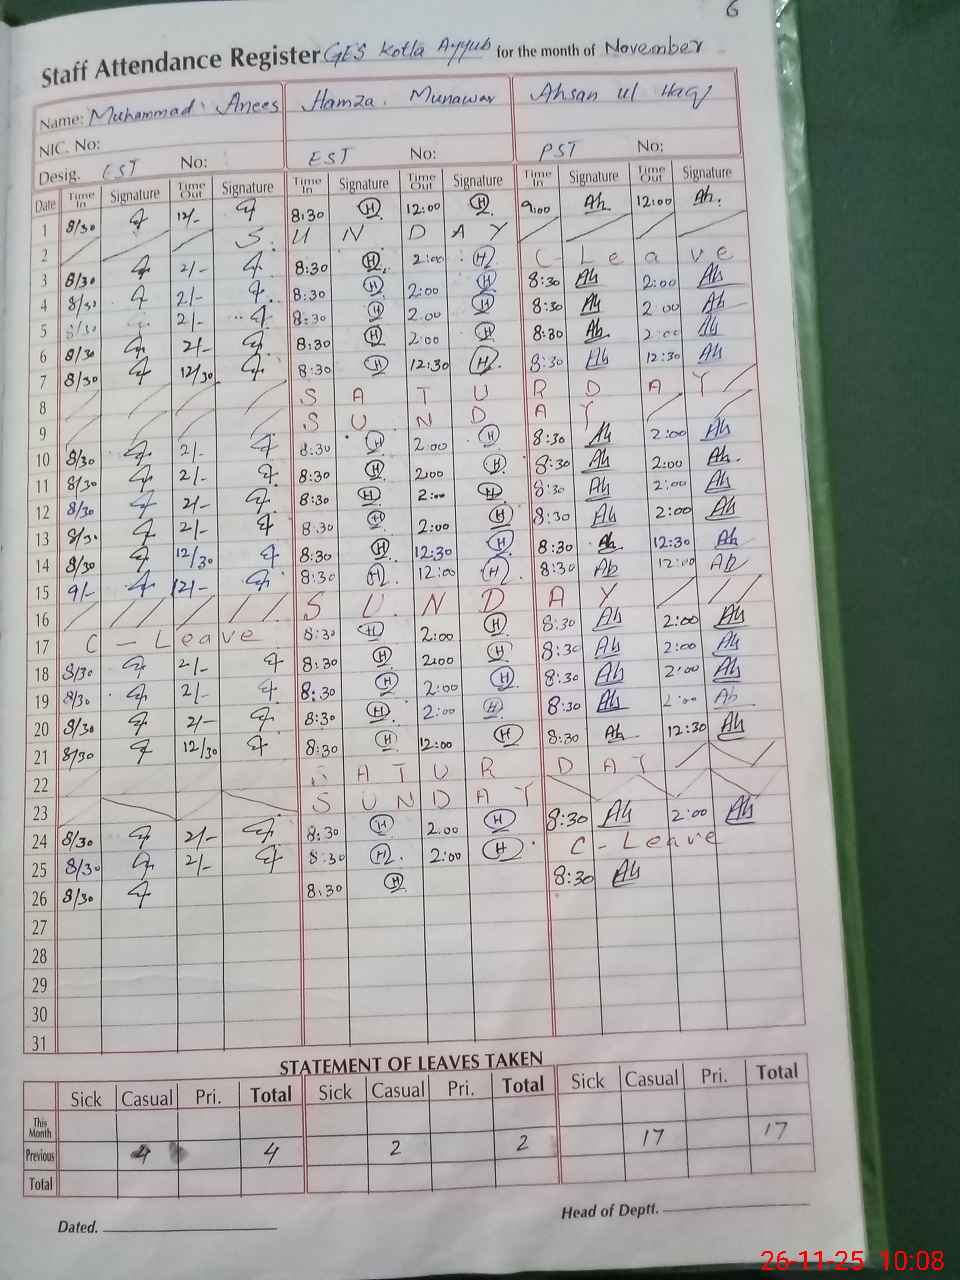 6
Staff Attendance Register GES Kotla Ayyub for the month of November
Name: Muhammad Anees Hamza Munawar Ahsan ul Haq
NIC. No:
Desig. EST No: EST No: PST No:
Date Time In Signature Time Out Signature Time In Signature Time Out Signature Time In Signature Time Out Signature
1 8/30 12/- 8:30 H 12:00 H 9:00 Ah 12:00 Ah.
2 S U N D A Y
3 8/30 2/- 8:30 H 2:00 H C-Leave
4 8/30 2/- 8:30 H 2:00 H 8:30 Ah 2:00 Ah
5 8/30 2/- 8:30 H 2:00 H 8:30 Ah 2:00 Ah
6 8/30 2/- 8:30 H 2:00 H 8:30 Ah 2:00 Ah
7 8/30 12/30 8:30 H 12:30 H 8:30 Ah 12:30 Ah
8 S A T U R D A Y
9 S U N D A Y
10 8/30 2/- 8:30 H 2:00 H 8:30 Ah 2:00 Ah
11 8/30 2/- 8:30 H 2:00 H 8:30 Ah 2:00 Ah
12 8/30 2/- 8:30 H 2:00 H 8:30 Ah 2:00 Ah
13 8/30 2/- 8:30 H 2:00 H 8:30 Ah 2:00 Ah
14 8/30 12/30 8:30 H 12:30 H 8:30 Ah 12:30 Ah
15 9/- 12/- 8:30 H 12:00 H 8:30 Ah 12:00 Ah
16 S U N D A Y
17 C - Leave 8:30 H 2:00 H 8:30 Ah 2:00 Ah
18 8/30 2/- 8:30 H 2:00 H 8:30 Ah 2:00 Ah
19 8/30 2/- 8:30 H 2:00 H 8:30 Ah 2:00 Ah
20 8/30 2/- 8:30 H 2:00 H 8:30 Ah 2:00 Ah
21 8/30 12/30 8:30 H 12:00 H 8:30 Ah 12:30 Ah
22 S A T U R D A Y
23 S U N D A Y
24 8/30 2/- 8:30 H 2:00 H 8:30 Ah 2:00 Ah
25 8/30 2/- 8:30 H 2:00 H C - Leave
26 8/30 8:30 H 8:30 Ah
27
28
29
30
31
STATEMENT OF LEAVES TAKEN
Sick Casual Pri. Total Sick Casual Pri. Total Sick Casual Pri. Total
This Month
Previous 4 4 2 2 17 17
Total
Dated. Head of Deptt.
26-11-25 10:08